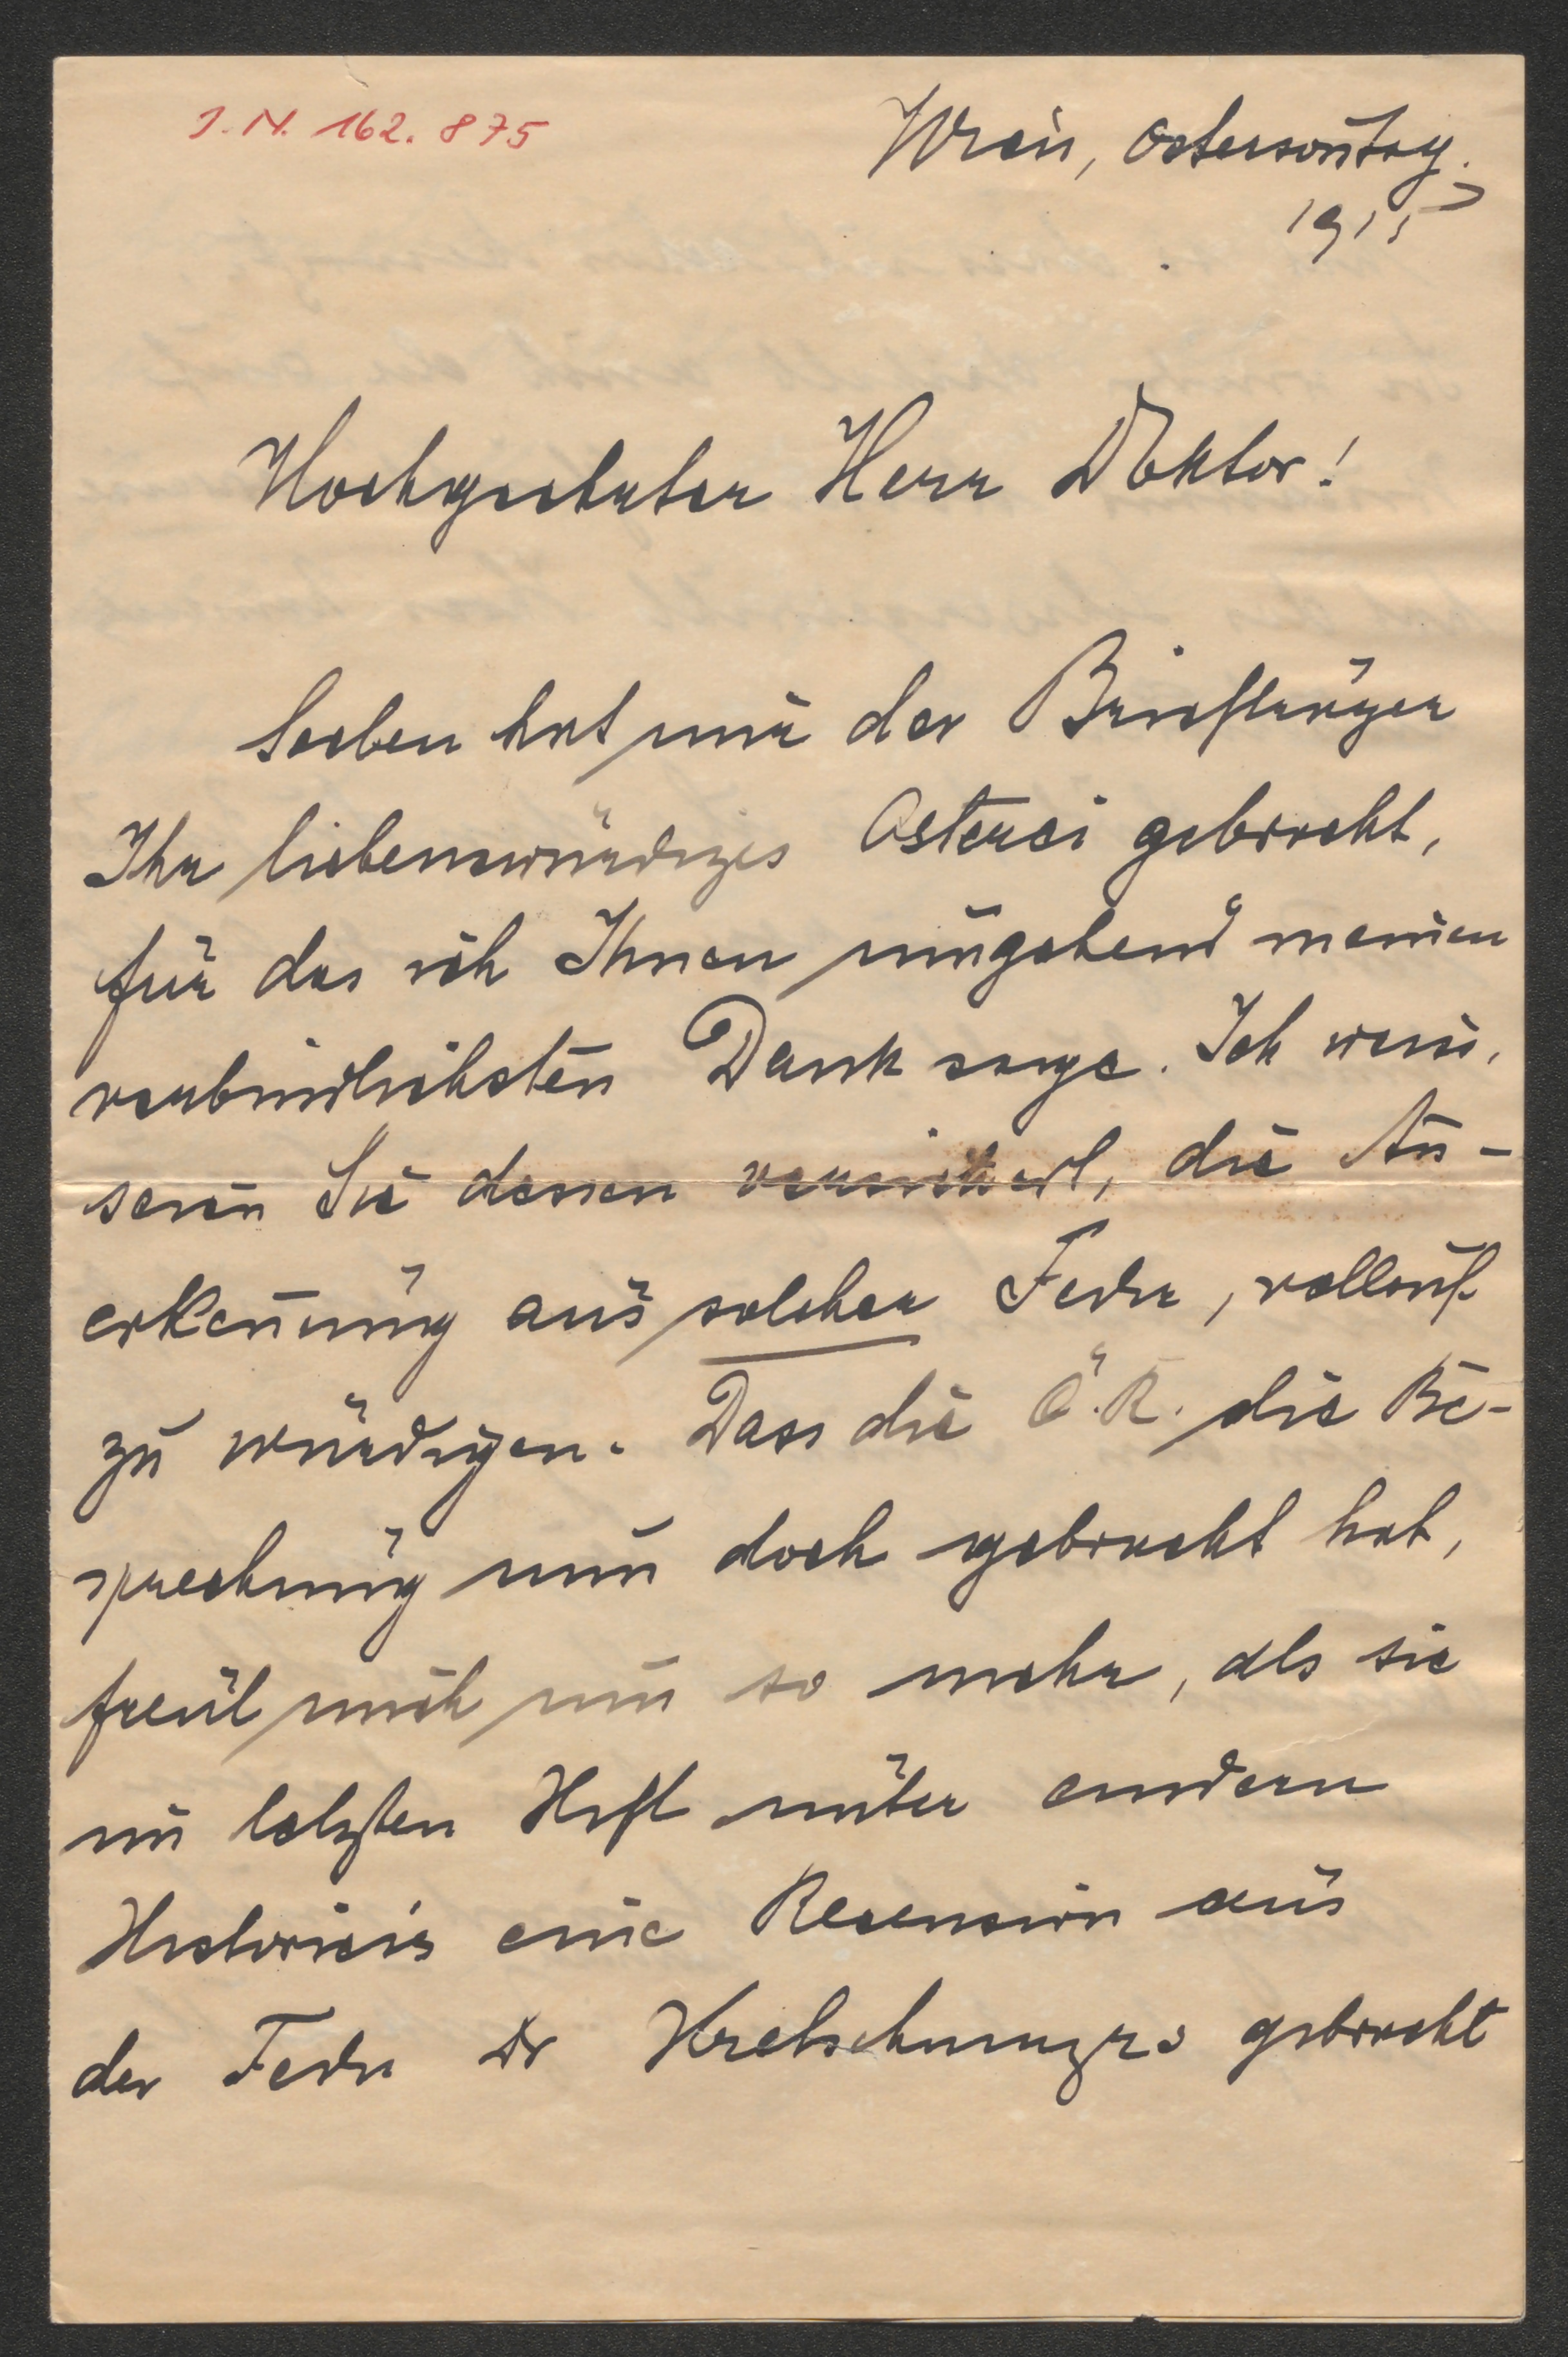 I. N. 162.875
Wien, Ostersontag.
1915
Hochgeehrter Herr Doktor!
Soeben hat mir der Briefträger
Ihr liebenswürdiges Osterei gebracht,
für das ich Ihnen umgehend meinen
verbindlichsten Dank sage. Ich weiss,
seien Sie dessen versichert, die An-
erkennung aus solcher Feder, vollauf
zu würdigen. Dass die Ö.R. die Be-
sprechung nun doch gebracht hat,
freut mich um so mehr, als sie
im letzten Heft unter andern
Historicis eine Recension aus
der Feder Dr Kretschmayrs gebracht